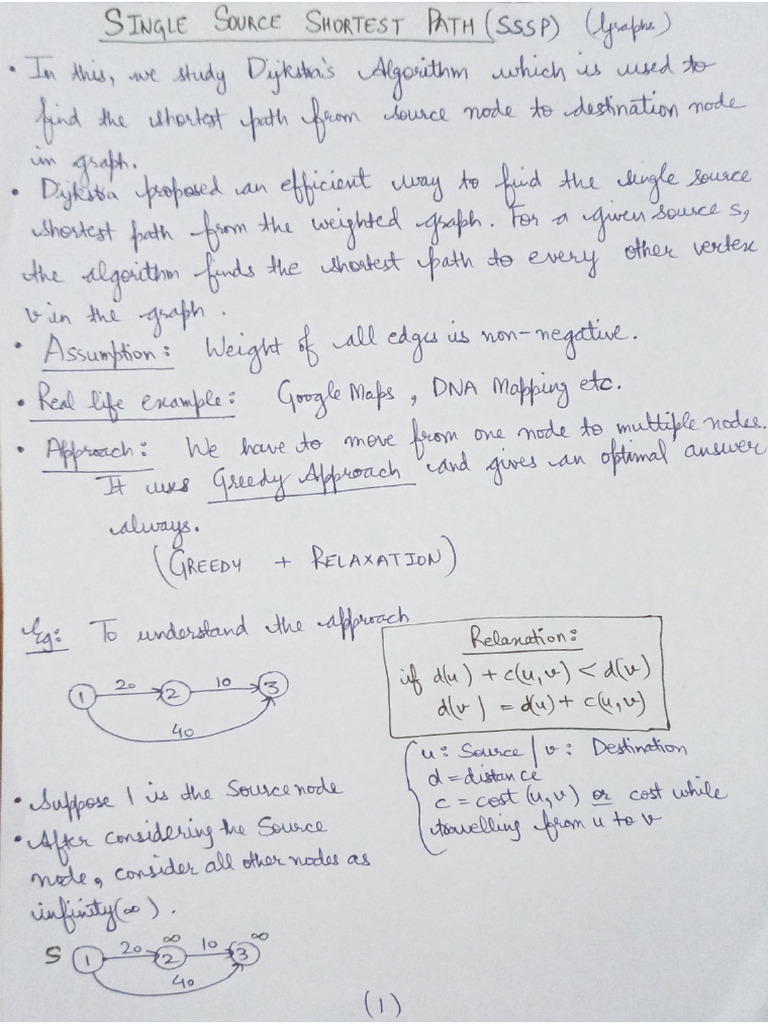 SINGLE SOURCE SHORTEST PATH (SSSP) (Graphs)
• In this, we study Dijkstra's Algorithm which is used to
find the shortest path from source node to destination node
in graph.
• Dijkstra proposed an efficient way to find the single source
shortest path from the weighted graph. For a given source s,
the algorithm finds the shortest path to every other vertex
v in the graph.
• Assumption: Weight of all edges is non-negative.
• Real life example: Google Maps, DNA Mapping etc.
• Approach: We have to move from one node to multiple nodes.
It uses Greedy Approach and gives an optimal answer
always.
(GREEDY + RELAXATION)
Eg: To understand the approach
1 20 2 10 3
40
Relaxation:
if d(u) + c(u,v) < d(v)
d(v) = d(u) + c(u,v)
u: Source / v: Destination
d = distance
c = cost (u,v) or cost while
travelling from u to v
• Suppose 1 is the Source node
• After considering the Source
node, consider all other nodes as
infinity (∞).
∞ ∞
S 1 20 2 10 3
40
(1)